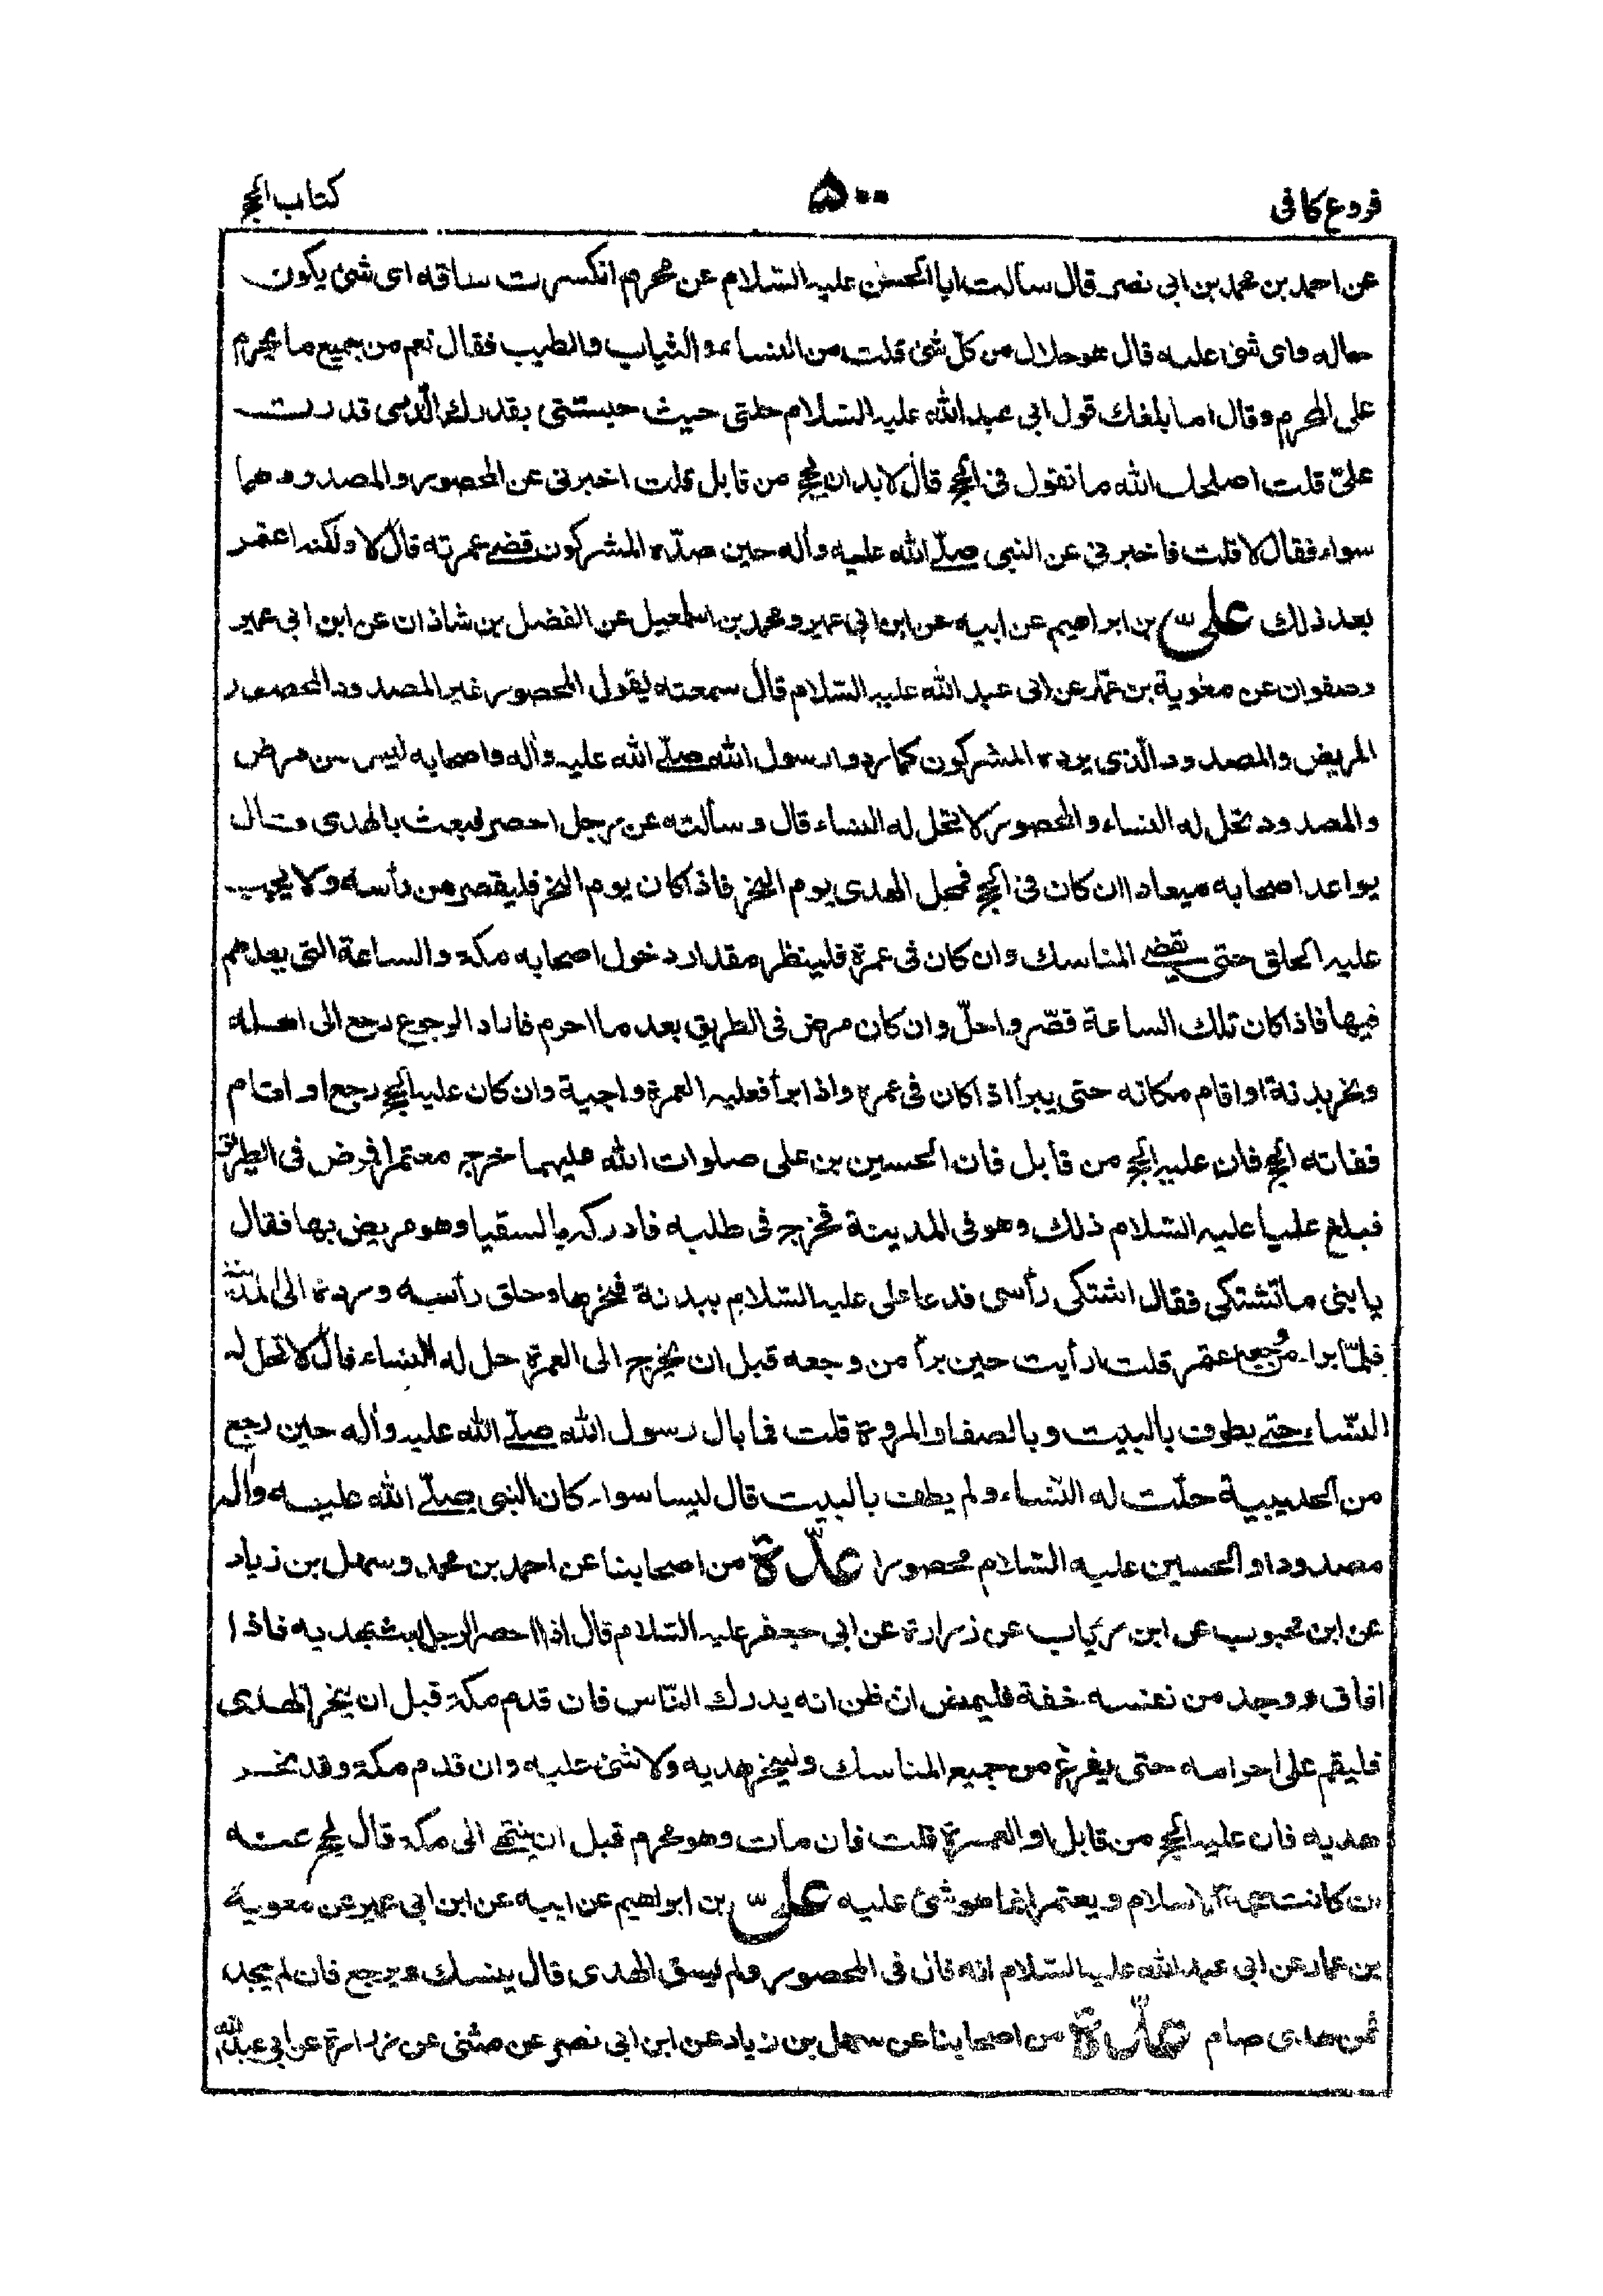 فروع کافی
۵۰۰
کتاب الحج
عن احمد بن محمد بن ابی نصر قال سألت ابا الحسن علیه السّلام عن محرم انکسرت ساقه ای شئ یکون
حاله وای شئ علیه قال هو حلال من کلّ شئ قلت من النساء والثیاب والطیب فقال نعم من جمیع ما یحرم
علی المحرم وقال اما بلغك قول ابی عبد الله علیه السّلام حلنی حیث حبستنی بقدرك الّذی قدرت
علیّ قلت اصلحك الله ما تقول فی الحج قال لا بد ان یحج من قابل قلت اخبرنی عن المحصور والمصدود هما
سواء فقال لا قلت فاخبرنی عن النبی صلّے الله علیه وأله حین صدّه المشرکون قضے عمرته قال لا ولکنه اعتمر
بعد ذلك علیّ بن ابراهیم عن ابیه عن ابن ابی عمیر ومحمد بن اسمعیل عن الفضل بن شاذان عن ابن ابی عمیر
وصفوان عن معویة بن عمّار عن ابی عبد الله علیه السّلام قال سمعته یقول المحصور غیر المصدود المحصور
المریض والمصدود الّذی یرده المشرکون کما ردوا رسول الله صلّے الله علیه وأله واصحابه لیس من مرض
والمصدود تحل له النساء والمحصور لا تحل له النساء قال وسألته عن رجل احصر فبعث بالهدی قال
یواعد اصحابه میعادا ان کان فی الحج فمحل الهدی یوم النحر فاذا کان یوم النحر فلیقصر من رأسه ولا یجب
علیه الحلق حتی یقضے المناسك وان کان فی عمرة فلینظر مقدار دخول اصحابه مکة والساعة التی یعدهم
فیها فاذا کان تلك الساعة قصّر واحلّ وان کان مرض فی الطریق بعد ما احرم فاراد الرجوع رجع الی اهله
ونحر بدنة او اقام مکانه حتی یبرأ اذا کان فی عمرة واذا برأ فعلیه العمرة واجبة وان کان علیه الحج رجع او اقام
ففاته الحج فان علیه الحج من قابل فان الحسین بن علی صلوات الله علیهما خرج معتمرا فمرض فی الطریق
فبلغ علیا علیه السّلام ذلك وهو فی المدینة فخرج فی طلبه فادرکه بالسقیا وهو مریض بها فقال
یا بنی ما تشتکی فقال اشتکی رأسی فدعا علی علیه السّلام ببدنة فنحرها وحلق رأسه ورده الی المدینة
فلمّا برا من وجعه اعتمر قلت ارأیت حین برأ من وجعه قبل ان یخرج الی العمرة حل له النساء قال لا تحل له
النّساء حتے یطوف بالبیت وبالصفا والمروة قلت فما بال رسول الله صلّے الله علیه وأله حین رجع
من الحدیبیة حلّت له النّساء ولم یطف بالبیت قال لیسا سواء کان النبی صلّے الله علیه وأله
مصدودا والحسین علیه السّلام محصورا عدّة من اصحابنا عن احمد بن محمد وسهل بن زیاد
عن ابن محبوب عن ابن رئاب عن زرارة عن ابی جعفر علیه السّلام قال اذا احصر الرجل بعث بهدیه فاذا
افاق ووجد من نفسه خفة فلیمض ان ظن انه یدرك النّاس فان قدم مکة قبل ان ینحر الهدی
فلیقم علی احرامه حتی یفرغ من جمیع المناسك ولینحر هدیه ولا شئ علیه وان قدم مکة وقد نحر
هدیه فان علیه الحج من قابل او العمرة قلت فان مات وهو محرم قبل ان ینتهے الی مکة قال یحج عنه
ان کانت حجة الاسلام ویعتمر انما هو شئ علیه علیّ بن ابراهیم عن ابیه عن ابن ابی عمیر عن معویة
بن عمار عن ابی عبد الله علیه السّلام انه قال فی المحصور ولم یسق الهدی قال ینسك ویرجع فان لم یجد
ثمن هدی صام عدّة من اصحابنا عن سهل بن زیاد عن ابن ابی نصر عن مثنی عن زرارة عن ابی عبد الله